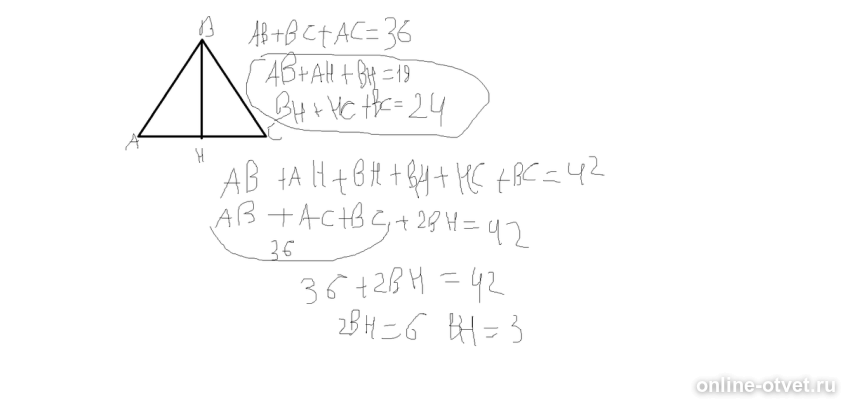 B
AB+BC+AC=36
AB+AH+BH=18
BH+HC+BC=24
A
H
C
AB+AH+BH+BH+HC+BC=42
AB+AC+BC+2BH=42
36
36+2BH=42
2BH=6 BH=3
online-otvet.ru